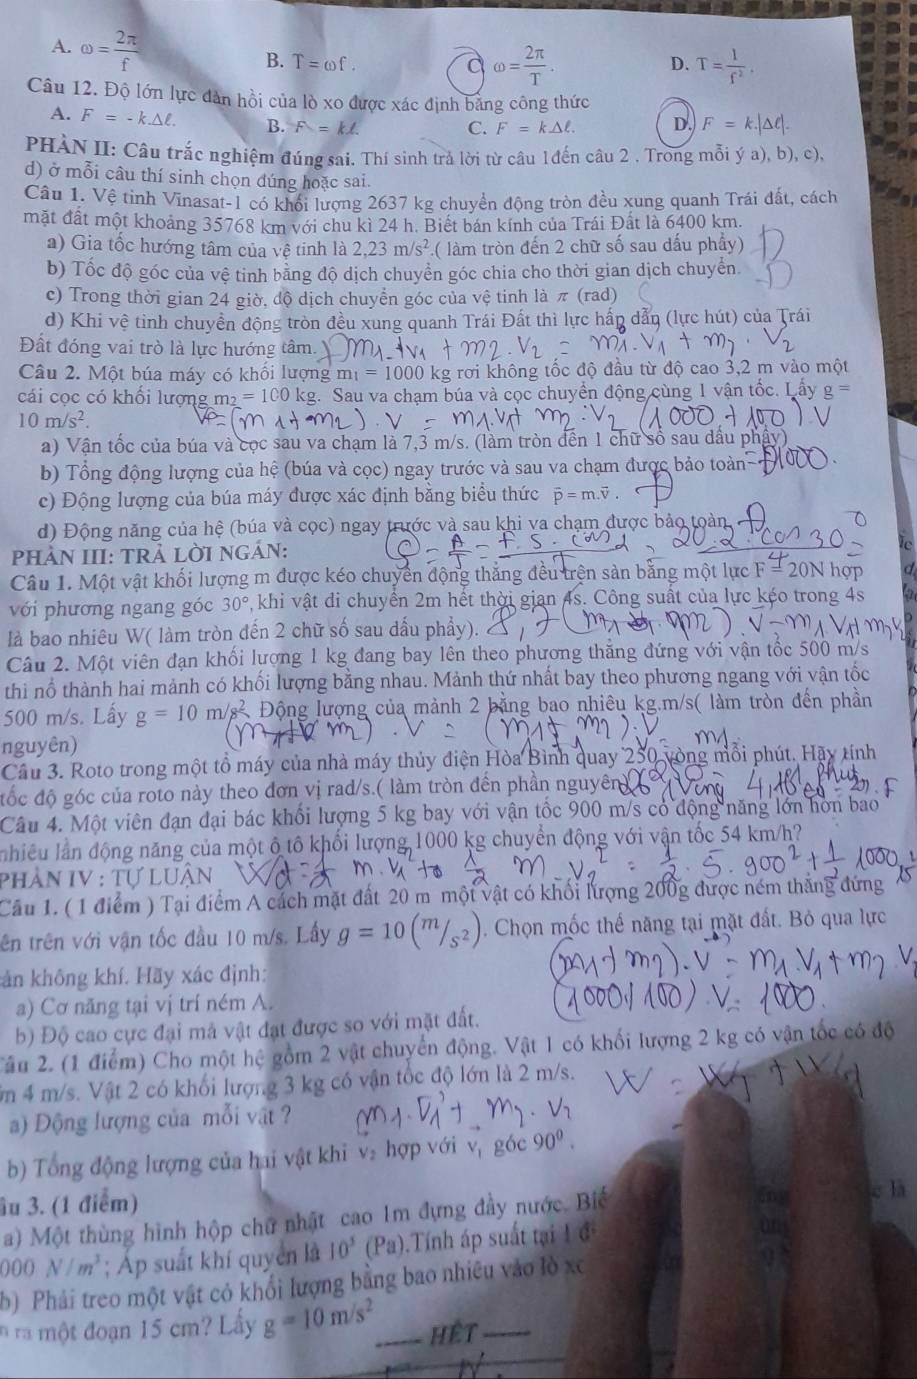 A. ω = 2π/f B. T = ωf. C. ω = 2π/T. D. T = 1/f².
Câu 12. Độ lớn lực đàn hồi của lò xo được xác định bằng công thức
A. F = - k.Δℓ. B. F = k.ℓ. C. F = k.Δℓ. D. F = k.|Δℓ|.
PHẦN II: Câu trắc nghiệm đúng sai. Thí sinh trả lời từ câu 1đến câu 2 . Trong mỗi ý a), b), c),
d) ở mỗi câu thí sinh chọn đúng hoặc sai.
Câu 1. Vệ tinh Vinasat-1 có khối lượng 2637 kg chuyển động tròn đều xung quanh Trái đất, cách
mặt đất một khoảng 35768 km với chu kì 24 h. Biết bán kính của Trái Đất là 6400 km.
a) Gia tốc hướng tâm của vệ tinh là 2,23 m/s².( làm tròn đến 2 chữ số sau dấu phẩy) Đ
b) Tốc độ góc của vệ tinh bằng độ dịch chuyển góc chia cho thời gian dịch chuyển. Đ
c) Trong thời gian 24 giờ, độ dịch chuyển góc của vệ tinh là π (rad) S
d) Khi vệ tinh chuyển động tròn đều xung quanh Trái Đất thì lực hấp dẫn (lực hút) của Trái
Đất đóng vai trò là lực hướng tâm. m1.v1 + m2.v2 = m1.v1 + m2.v2
Câu 2. Một búa máy có khối lượng m₁ = 1000 kg rơi không tốc độ đầu từ độ cao 3,2 m vào một
cái cọc có khối lượng m₂ = 100 kg. Sau va chạm búa và cọc chuyển động cùng 1 vận tốc. Lấy g =
10 m/s². (m1+m2).v = m1.v1+m2.v2 (1000+100).v
a) Vận tốc của búa và cọc sau va chạm là 7,3 m/s. (làm tròn đến 1 chữ số sau dấu phẩy)
b) Tổng động lượng của hệ (búa và cọc) ngay trước và sau va chạm được bảo toàn 1000.
c) Động lượng của búa máy được xác định bằng biểu thức p⃗ = m.v⃗ . Đ
d) Động năng của hệ (búa và cọc) ngay trước và sau khi va chạm được bảo toàn.
PHẦN III: TRẢ LỜI NGẮN: = A/t = F.s.cosα = 20.2.cos30⁰/4 =
Câu 1. Một vật khối lượng m được kéo chuyển động thẳng đều trên sàn bằng một lực F = 20N hợp
với phương ngang góc 30°, khi vật di chuyển 2m hết thời gian 4s. Công suất của lực kéo trong 4s
là bao nhiêu W( làm tròn đến 2 chữ số sau dấu phẩy). 8,7
Câu 2. Một viên đạn khối lượng 1 kg đang bay lên theo phương thẳng đứng với vận tốc 500 m/s
thì nổ thành hai mảnh có khối lượng bằng nhau. Mảnh thứ nhất bay theo phương ngang với vận tốc
500 m/s. Lấy g = 10 m/s². Động lượng của mảnh 2 bằng bao nhiêu kg.m/s( làm tròn đến phần
nguyên)
Câu 3. Roto trong một tổ máy của nhà máy thủy điện Hòa Bình quay 250 vòng mỗi phút. Hãy tính
tốc độ góc của roto này theo đơn vị rad/s.( làm tròn đến phần nguyên)
Câu 4. Một viên đạn đại bác khối lượng 5 kg bay với vận tốc 900 m/s có động năng lớn hơn bao
nhiêu lần động năng của một ô tô khối lượng 1000 kg chuyển động với vận tốc 54 km/h?
PHẦN IV : TỰ LUẬN Wđ = 1/2 m.v1² + 1/2 m.v2² = 1/2.5.900² + 1/2 1000. 15
Câu 1. ( 1 điểm ) Tại điểm A cách mặt đất 20 m một vật có khối lượng 200g được ném thẳng đứng
ên trên với vận tốc đầu 10 m/s. Lấy g = 10 (m/s²). Chọn mốc thế năng tại mặt đất. Bỏ qua lực
ản không khí. Hãy xác định: (m1+m2).v = m1.v1+m2.v
a) Cơ năng tại vị trí ném A. (1000+100).v = 1000.
b) Độ cao cực đại mà vật đạt được so với mặt đất.
Câu 2. (1 điểm) Cho một hệ gồm 2 vật chuyển động. Vật 1 có khối lượng 2 kg có vận tốc có độ
ớn 4 m/s. Vật 2 có khối lượng 3 kg có vận tốc độ lớn là 2 m/s. W =
a) Động lượng của mỗi vật ? m1.v1 + m2.v2
b) Tổng động lượng của hai vật khi v₂ hợp với v₁ góc 90⁰ .
âu 3. (1 điểm)
a) Một thùng hình hộp chữ nhật cao 1m đựng đầy nước. Biế
000 N/m³; Áp suất khí quyển là 10⁵ (Pa).Tính áp suất tại 1 đ
b) Phải treo một vật có khối lượng bằng bao nhiêu vào lò xo
n ra một đoạn 15 cm? Lấy g = 10 m/s²
HẾT